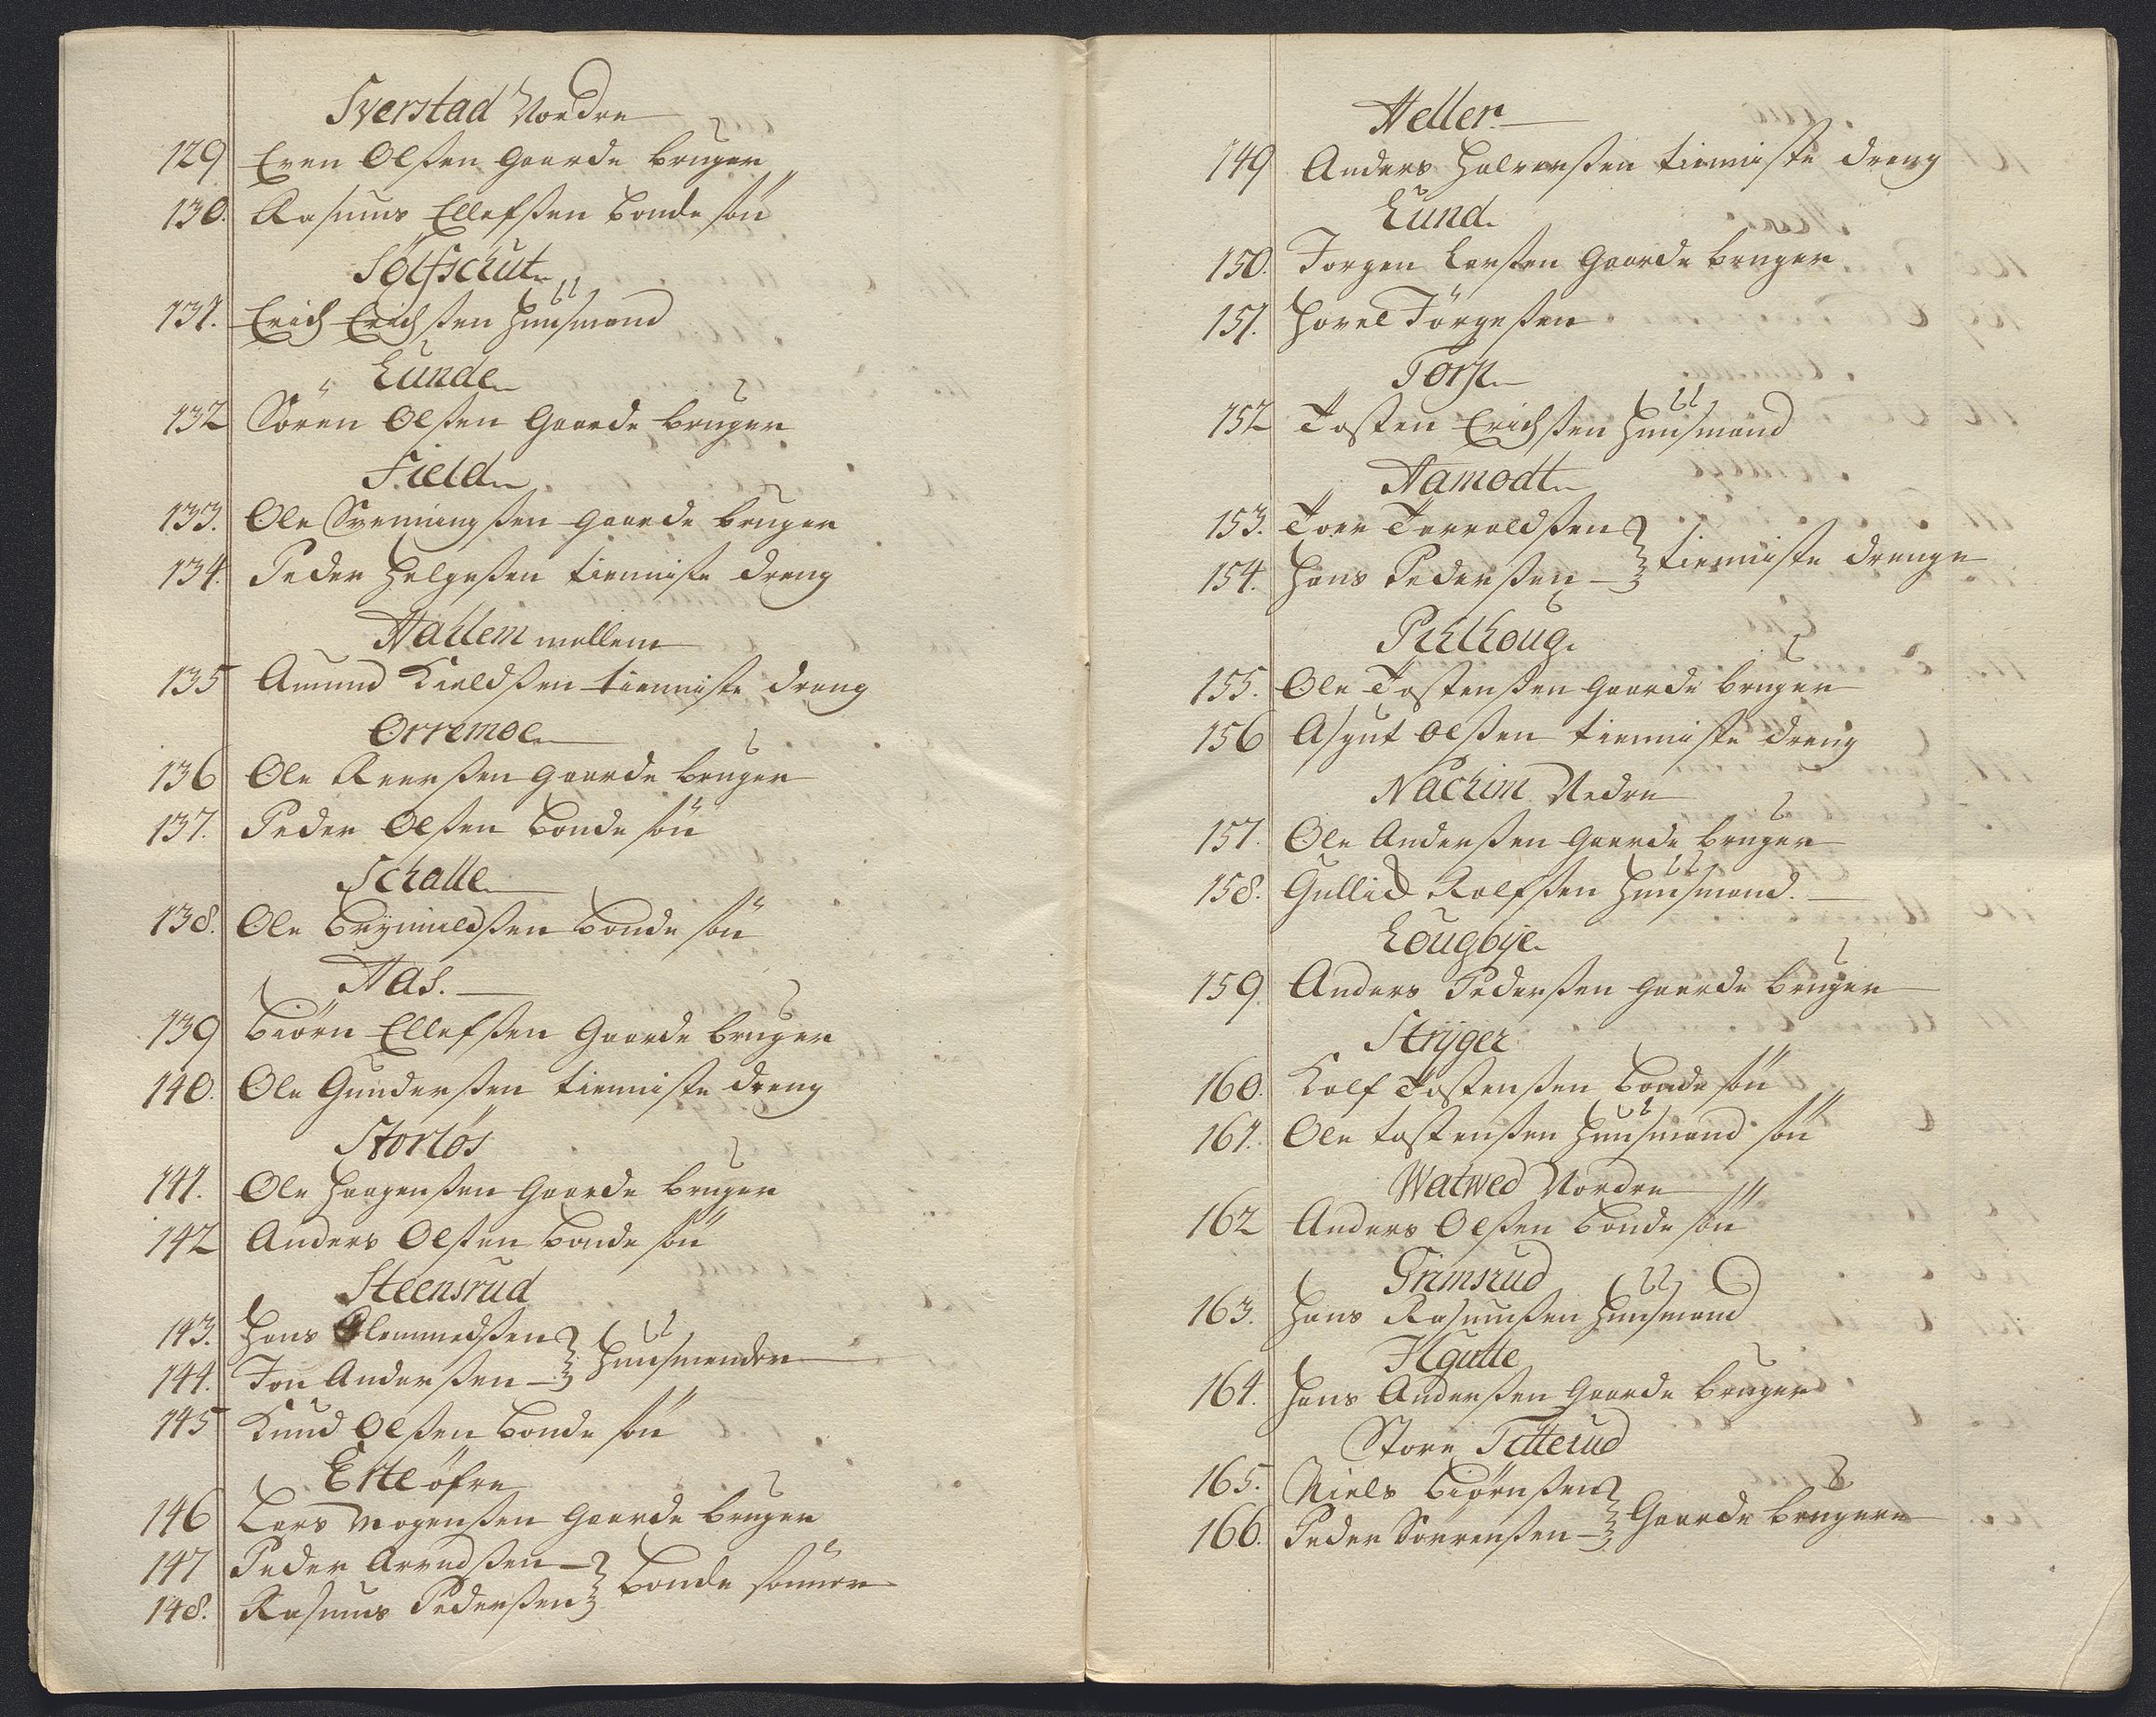 Sverstad Nordre
129 Even Olsen Gaarde bruger
130. Rasmus Ellefsen bonde sön
Sølfschut
131. Erich Erichsen huusmand
Lunde
132 Sören Olsen Gaarde bruger
Field
133. Ole Svenningsen gaarde bruger
134. Peder Helgesen tienniste dreng
Hahlem mellem
135 Amund Kieldsen tienniste dreng
Orremoe
136 Ole Reersen gaarde bruger
137. Peder Olsen bonde sön
Schalle
138. Ole Brynnildsen bonde sön
Aas.
139 Biörn Ellefsen Gaarde bruger
140. Ole Gundersen tienniste dreng
Storlös
141. Ole Haagensen gaarde bruger
142 Anders Olsen bonde sön
Steensrud
143. Hans Clemmedsen
144. Jon Andersen huusmender
145 Knud Olsen bonde sön
Erte öfre
146 Lars Mogensen gaarde bruger
147 Peder Arvedsen
148. Rasmus Pedersen bonde sönner
Heller
149 Anders Halvorsen tienniste dreng
Lund.
150. Jorgen Larsen gaarde bruger
151. Hovel Jörgesen
Torp
152 Tosten Erichsen huusmand
Aamodt
153. Tore Torvoldsen
154. Hans Pedersen tienniste drenge
Pihlhoug.
155. Ole Tostensen gaarde bruger
156 Asgut Olsen tienniste dreng
Nachim Nedre
157. Ole Andersen gaarde bruger
158. Gullich Rolfsen huusmand.
Lougbye
159. Anders Pedersen gaarde bruger
Stryger
160. Rolf Tostensen bonde sön
161. Ole tostensen huusmand sön
Watwed Nordre
162 Anders Olsen bonde sön
Grimsrud
163. Hans Rasmussen huusmand
164. Hans Andersen gaarde bruger
Store Titterud
165. Niels Biörnsen
166. Peder Sörrensen Gaarde brugere